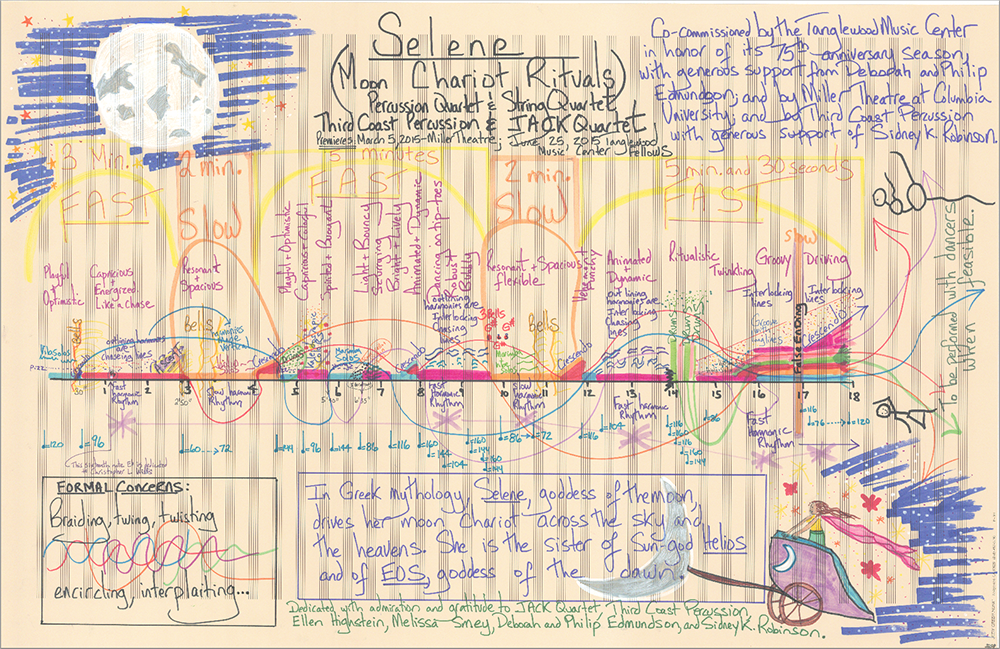 Selene
(Moon Chariot Rituals)
Percussion Quartet & String Quartet
Third Coast Percussion & JACK Quartet
Premieres: March 5, 2015 - Miller Theatre; June 25, 2015 Tanglewood
Music Center Fellows
Co-commissioned by the Tanglewood Music Center
in honor of its 75th anniversary season,
with generous support from Deborah and Philip
Edmundson; and by Miller Theatre at Columbia
University; and by Third Coast Percussion
with generous support of Sidney K. Robinson.
3 Min.
FAST
2 min.
Slow
5 minutes
FAST
2 min.
Slow
5 min. and 30 seconds
FAST
slow
Playful + Optimistic
Capricious + Energized. Like a chase
Resonant Spacious
Playful + Optimistic
Capricious + Colorful
Spirited + Buoyant
Light + Bouncy
Bright + Lively
Animated + Dynamic
Dancing on tip-toes
Robust
Resonant + Spacious flexible
Punchy
Animated + Dynamic
Ritualistic
Twinkling
Groovy
Driving
outlining harmonies are Interlocking Chasing lines
out lining harmonies are Interlocking Chasing lines
Interlocking lines
Interlocking lines
Bells
Bells
Bells
3 Bells
outlining harmonies are chaseing lines
Crescendo
Crescendo
Crescendo
Marimba Solos
Drums
Drums
False Ending
Pizz
1 2 3 4 5 6 7 8 9 10 11 12 13 14 15 16 17 18
30"
2'50"
Fast harmonic Rhythm
slow harmonic Rhythm
Fast harmonic Rhythm
slow harmonic Rhythm
Fast harmonic Rhythm
Fast Harmonic Rhythm
♩=120
♩=96
♩=60...→72
♩=144
♩=96
♩=144
♩=86
♩=116
♩=160
♩=144
♩=104
♩=160
♩=144
♩=86→-72
♩=104
♩=116
♩=160
♩=144
♩=86
♩=116
♩=76----→=120
To be performed with dancers
when feasible..
FORMAL CONCERNS:
Braiding, twing, twisting
encircling, interplaiting...
In Greek mythology, Selene, goddess of the moon,
drives her moon chariot across the sky and
the heavens. She is the sister of Sun-god Helios
and of EOS, goddess of the dawn.
Dedicated with admiration and gratitude to JACK Quartet, Third Coast Percussion,
Ellen Highstein, Melissa Smey, Deborah and Philip Edmundson, and Sidney K. Robinson.